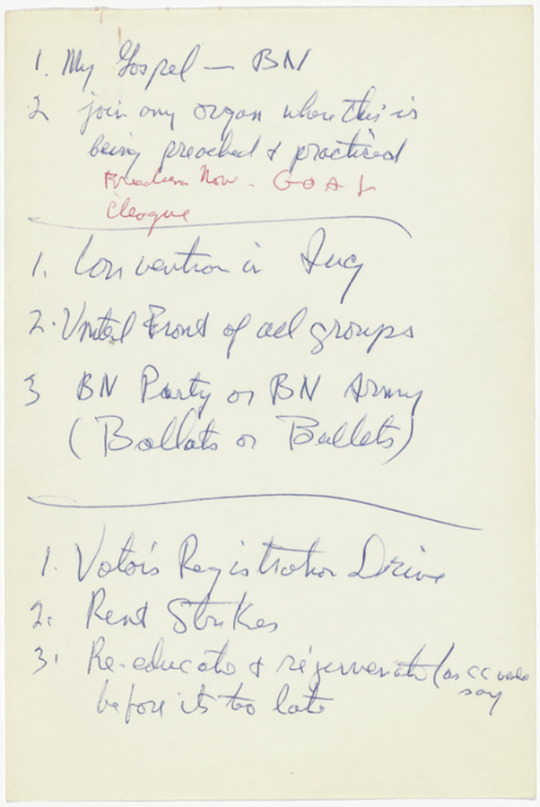 1. My Gospel — BN
2 join any organ where this is
being preached & practiced
Freedom Now - GOAL
Cleague
1. Convention in Aug
2. United Front of all groups
3 BN Party or BN Army
(Ballots or Bullets)
1. Voters Registration Drive
2. Rent Strikes
3. Re-educate & rejuvenate (as CC
say
before its too late